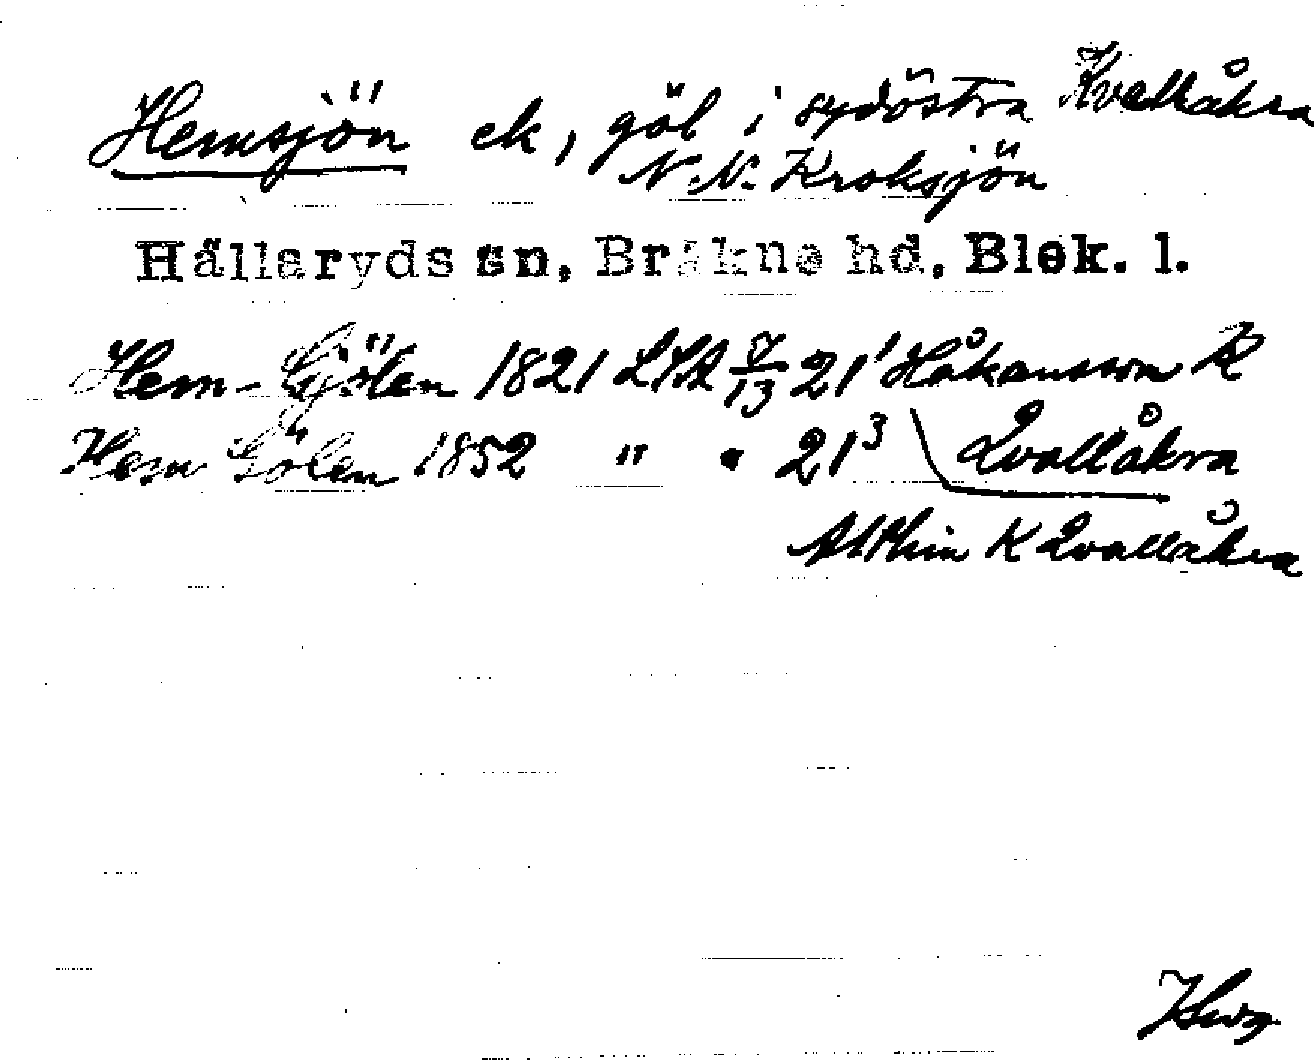 Hemsjön ek, göl i sydöstra Kvallåkra
N.N. Kroksjön
Hällaryds sn, Bräkne hd, Blek. l.
Hem-Gjölen 1821 LSA 7/13 21¹ Håkansson K
Hem Gölen 1852 " " 21³ Qvallåkra
K Qvallåkra